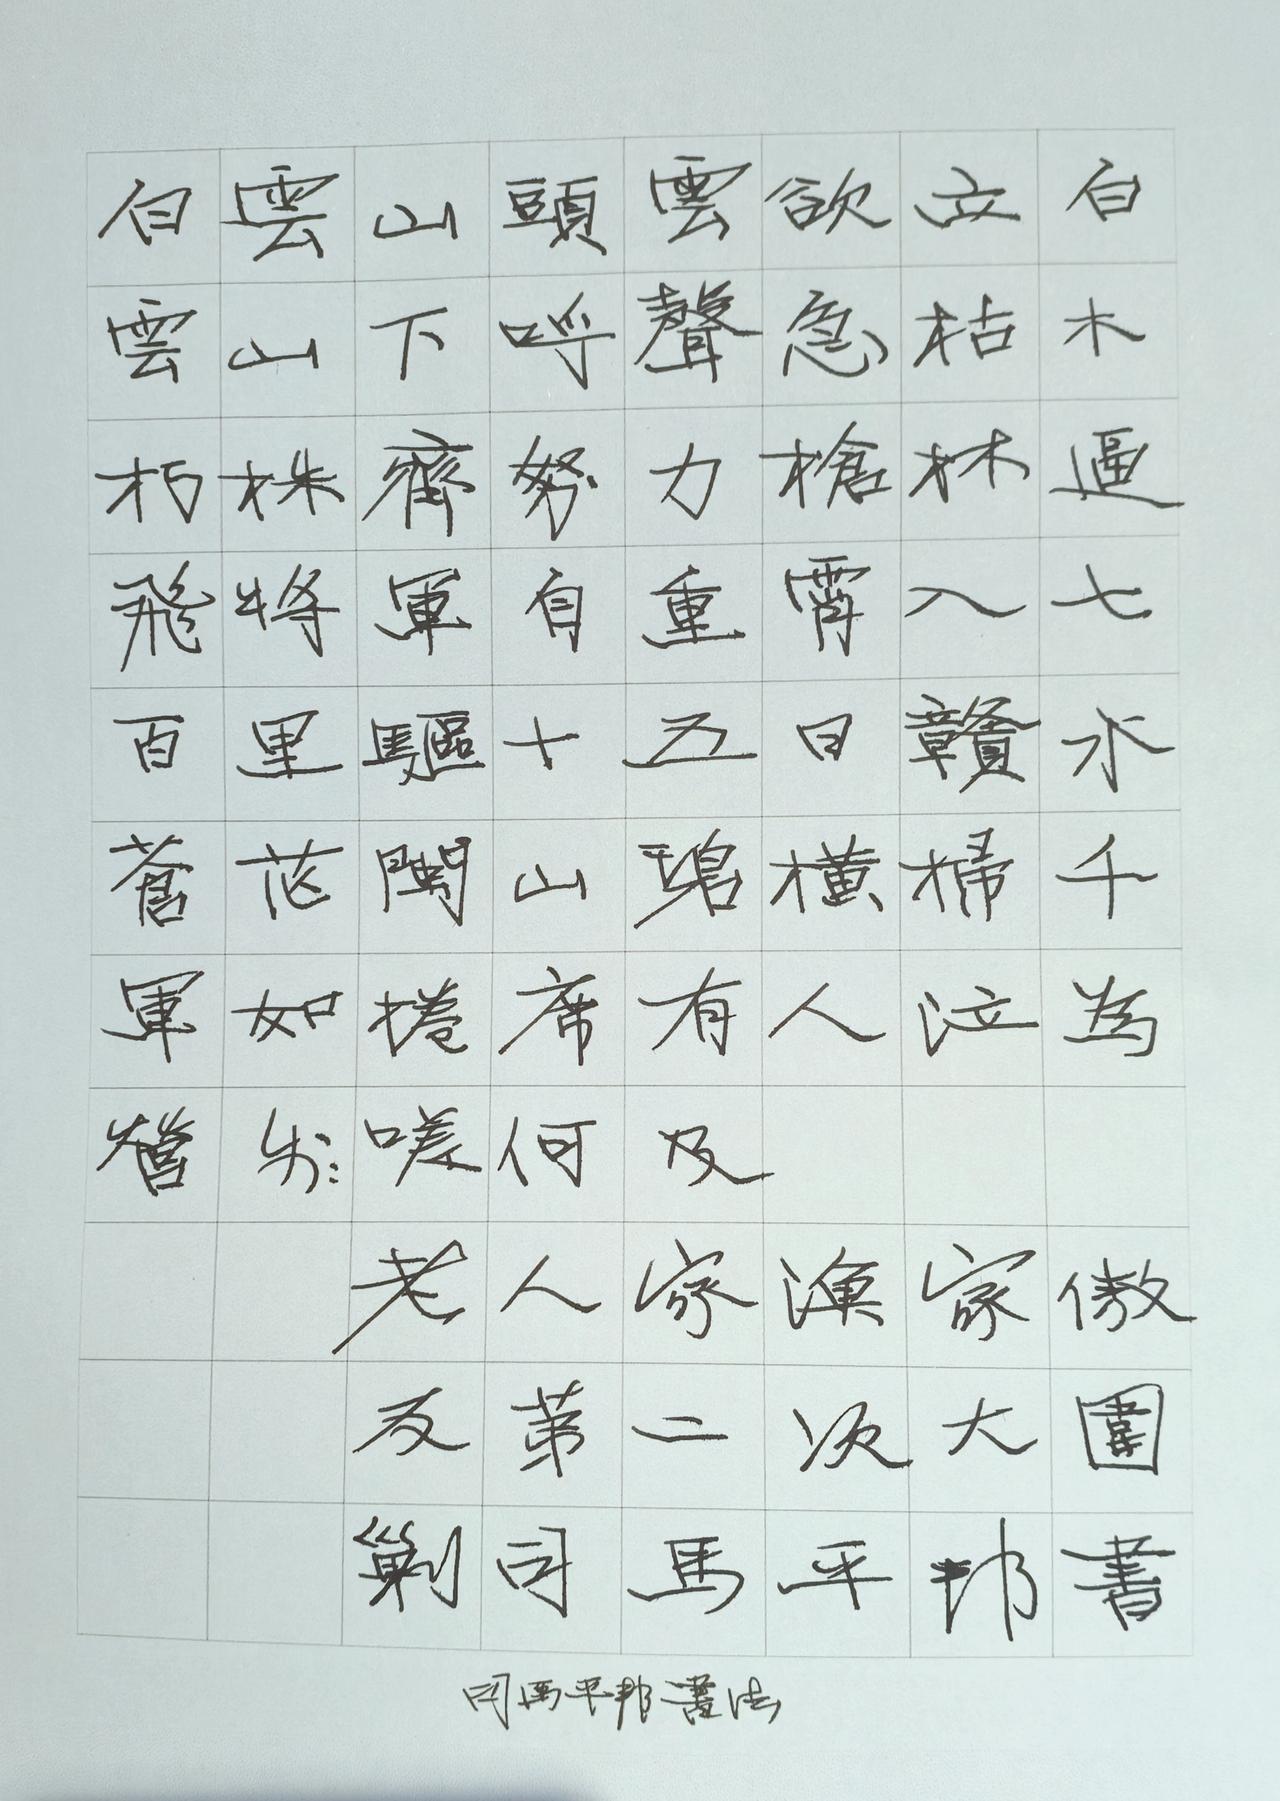 白雲山頭雲欲立白
雲山下呼聲急枯木
朽株齊努力槍林逼
飛將軍自重霄入七
百里驅十五日贛水
蒼茫閩山碧橫掃千
軍如捲席有人泣為
營步步嗟何及
老人家漁家傲
反第二次大圍
剿司馬平邦書
司馬平邦書法